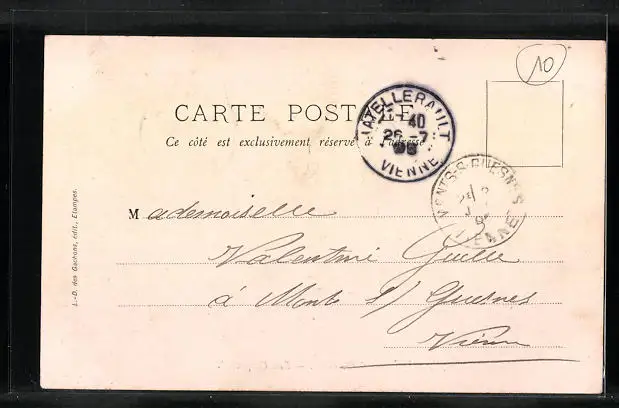 10
CARTE POSTALE
Ce côté est exclusivement réservé à l'adresse
CHATELLERAULT
40
26 -7
VIENNE
MONTS-S-GUESNES
VIENNE
Mademoiselle
Valentine Guelle
à Monts s/ Guesnes
Vienne
J.-D. des Gachons, édit., Etampes.